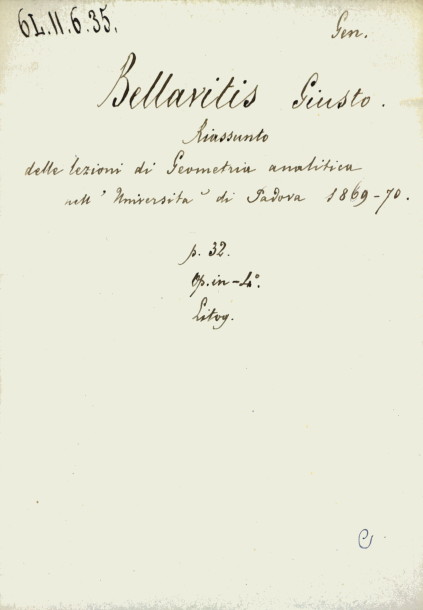 6L.11.6.35.
Gen.
Bellavitis Giusto.
Riassunto
delle lezioni di Geometria analitica
nell' Università di Padova 1869-70.
p. 32.
Op. in-4º.
Litog.